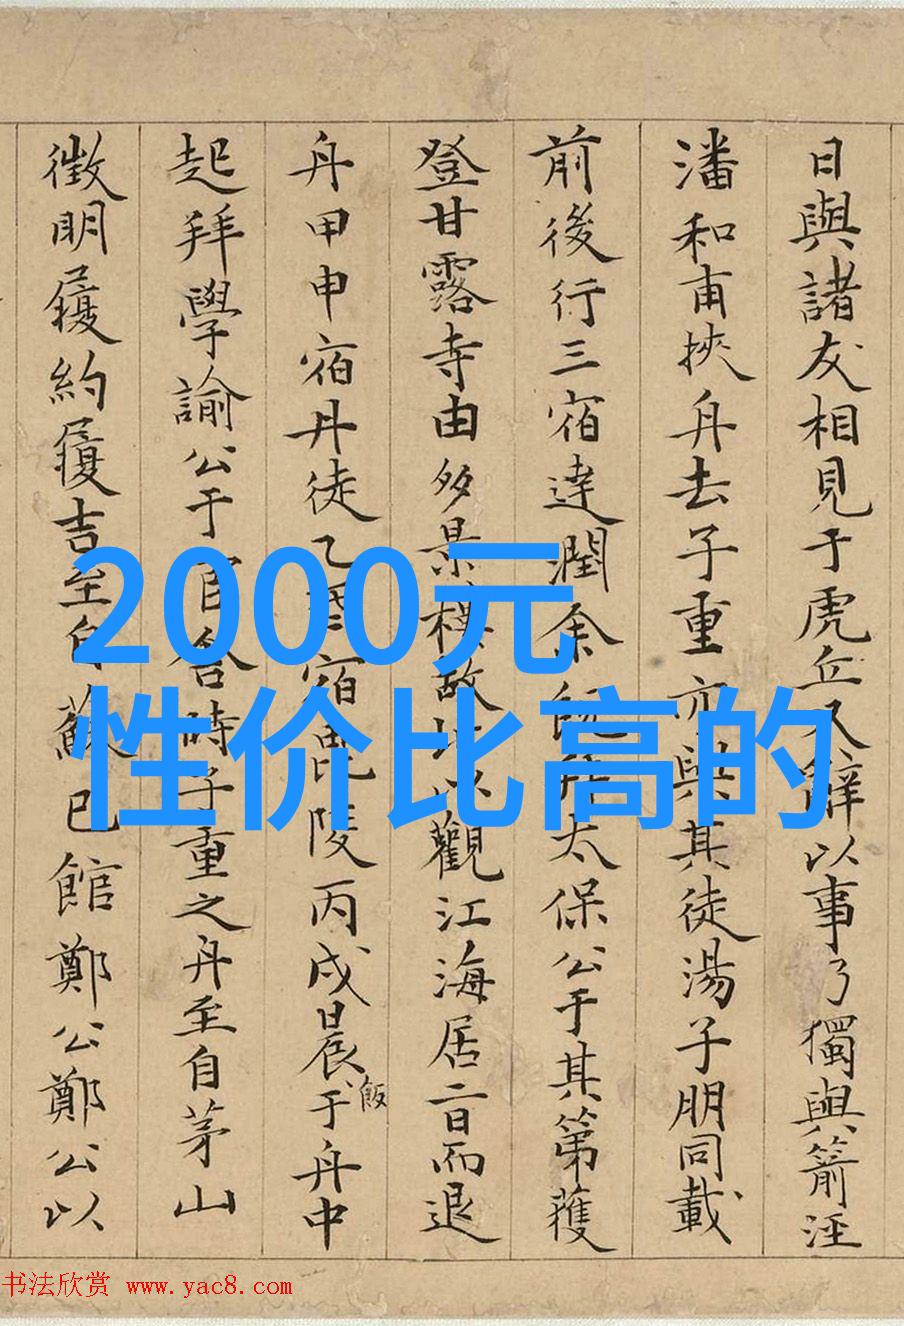 日與諸友相見于虎丘又辭以事乃獨與箭涇
潘和甫挾舟去子重亦與其徒湯子朋同載
前後行三宿達潤余即拜太保公于其第獲
登甘露寺由多景樓故址以觀江海居二日而退
舟甲申宿丹徒乙酉宿毘陵丙戌晨飯于舟中
起拜學諭公于官舍時子重之舟至自茅山
徵明履約履吉至自蘇已館鄭公鄭公以
2000元
性价比高的
书法欣赏 www.yac8.com